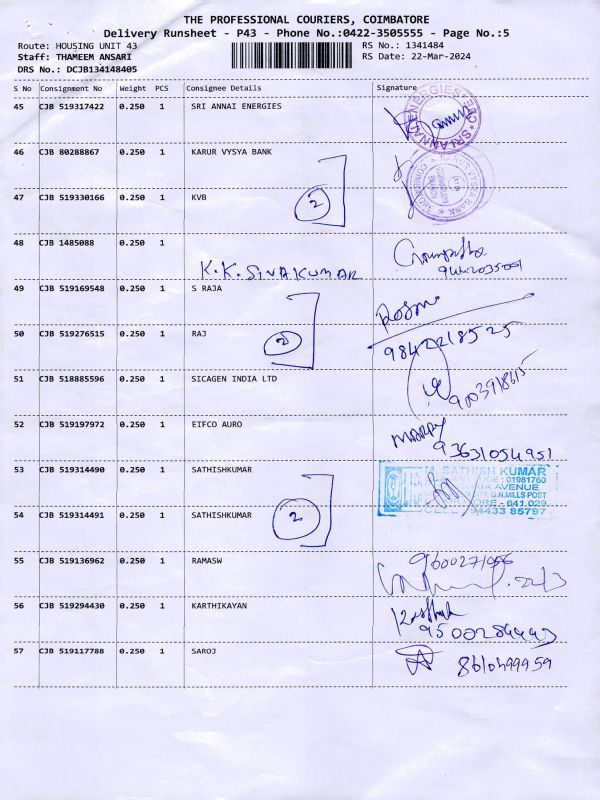 THE PROFESSIONAL COURIERS, COIMBATORE
Delivery Runsheet - P43 - Phone No.:0422-3505555 - Page No.:5
Route: HOUSING UNIT 43
RS No.: 1341484
Staff: THAMEEM ANSARI
RS Date: 22-Mar-2024
DRS No.: DCJB134148405
S No Consignment No Weight PCS Consignee Details Signature
45 CJB 519317422 0.250 1 SRI ANNAI ENERGIES
SRI ANNAI ENERGIES CBE
46 CJB 80288867 0.250 1 KARUR VYSYA BANK
KARUR VYSYA BANK
2
47 CJB 519330166 0.250 1 KVB
48 CJB 1485088 0.250 1
K.K.SIVAKUMAR
49 CJB 519169548 0.250 1 S RAJA
2
50 CJB 519276515 0.250 1 RAJ
9842218525
51 CJB 518885596 0.250 1 SICAGEN INDIA LTD
52 CJB 519197972 0.250 1 EIFCO AURO
93631054951
53 CJB 519314490 0.250 1 SATHISHKUMAR
M. SATHISH KUMAR
: 01981760
AVENUE
G.N.MILLS POST
- 641 029
94433 85797
2
54 CJB 519314491 0.250 1 SATHISHKUMAR
55 CJB 519136962 0.250 1 RAMASW
56 CJB 519294430 0.250 1 KARTHIKAYAN
57 CJB 519117788 0.250 1 SAROJ